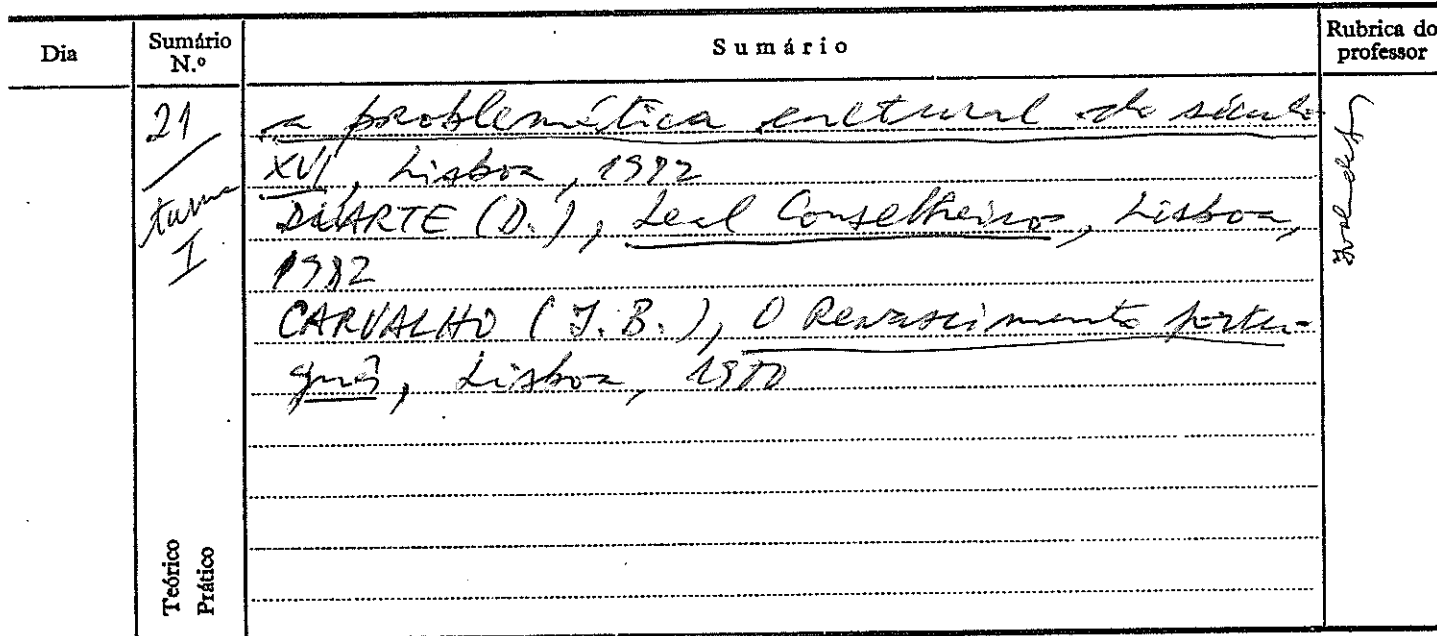 Dia
Sumário N.º
Sumário
Rubrica do professor
21
turma
I
a problemática cultural do século
XVI, Lisboa, 1982
DUARTE (D.), Leal Conselheiro, Lisboa,
1982
CARVALHO (J. B.), O Renascimento portu-
guês, Lisboa, 1980
Teórico
Prático